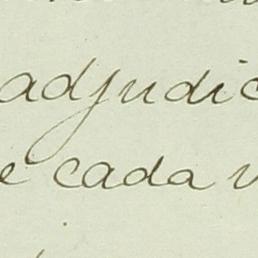 adjudic
e cada v